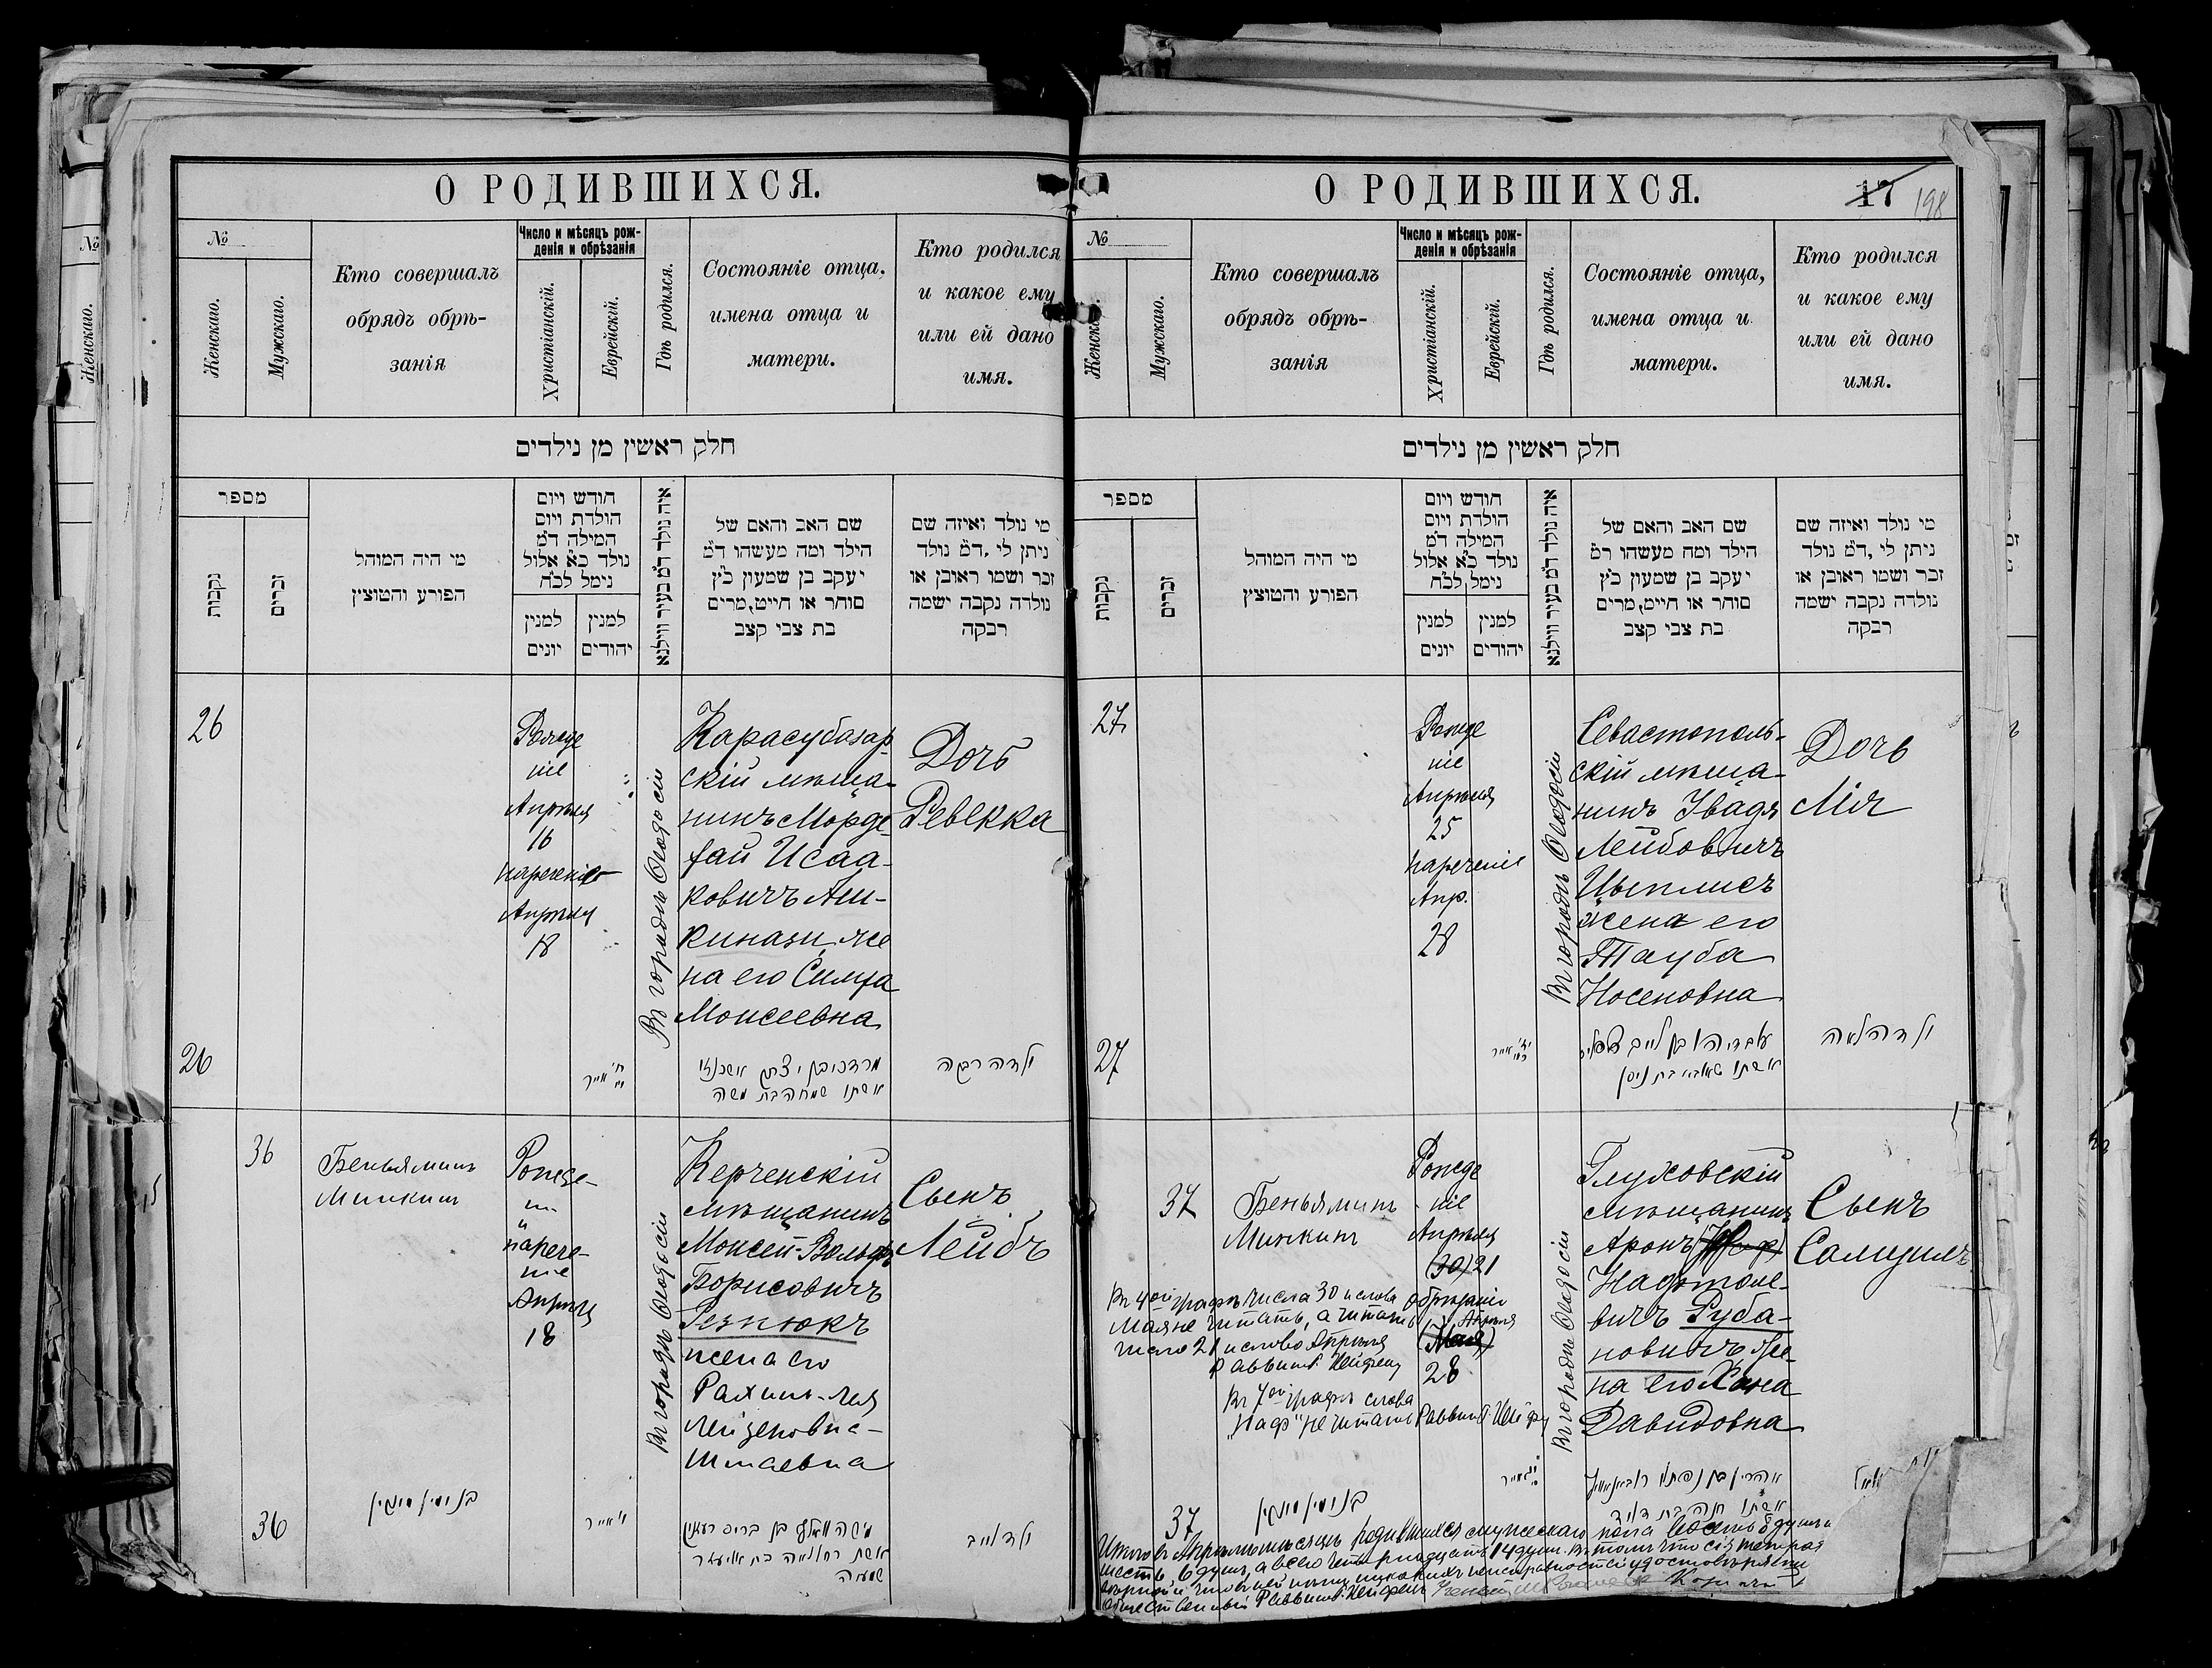 О РОДИВШИХСЯ.
№
Женскаго.
Мужскаго.
Кто совершалъ
обрядъ обрѣ-
занія
Число и мѣсяцъ рож-
денія и обрѣзанія
Христіанскій.
Еврейскій.
Гдѣ родился.
Состояніе отца,
имена отца и
матери.
Кто родился
и какое ему
или ей дано
имя.
חלק ראשין מן נילדים
מספר
נקבות
זכרים
מי היה המוהל
הפורע והמוצץ
חודש ויום
הולדת ויום
המילה ד״מ
נולד כ״א אלול
נימל לכ״ח
למנין
יונים
למנין
יהודים
איה נולד ד״מ בעיר ווילנא
שם האב והאם של
הילד ומה מעשהו ד״מ
יעקב בן שמעון כ״ץ
סוחר או חייט, מרים
בת צבי קצב
מי נולד ואיזה שם
ניתן לי, ד״מ נולד
זכר ושמו ראובן או
נולדה נקבה ישמה
רבקה
26
Рожде
ніе
Апрѣля
16
нареченіе
Апрѣля
18
Въ городѣ Ѳеодосіи
Карасубазар
скій мѣща-
нинъ Морде
хай Исаа-
ковичъ Аш-
кинази, же
на его Симха
Моисеевна
Дочь
Ревекка
26
ח׳ אייר
מרדכי בן יצחק אשכנזי
אשתו שמחה בת משה
ילדה רבקה
36
Беньяминъ
Минкинъ
Рожде-
ніе
и
нарече-
ніе
Апрѣля
18
Въ городѣ Ѳеодосіи
Керченскій
мѣщанинъ
Моисей-Вольфъ
Борисовичъ
Резнюкъ
жена его
Рахиль-Лея
Лейзеровна-
Шмаевна
Сынъ
Лейбъ
36
בנימין מינקין
י׳ אייר
ילד לייב
О РОДИВШИХСЯ.
17 198
№
Женскаго.
Мужскаго.
Кто совершалъ
обрядъ обрѣ-
занія
Число и мѣсяцъ рож-
денія и обрѣзанія
Христіанскій.
Еврейскій.
Гдѣ родился.
Состояніе отца,
имена отца и
матери.
Кто родился
и какое ему
или ей дано
имя.
חלק ראשין מן נילדים
מספר
נקבות
זכרים
מי היה המוהל
הפורע והמוצץ
חודש ויום
הולדת ויום
המילה ד״מ
נולד כ״א אלול
נימל לכ״ח
למנין
יונים
למנין
יהודים
איה נולד ד״מ בעיר ווילנא
שם האב והאם של
הילד ומה מעשהו ד״מ
יעקב בן שמעון כ״ץ
סוחר או חייט, מרים
בת צבי קצב
מי נולד ואיזה שם
ניתן לי, ד״מ נולד
זכר ושמו ראובן או
נולדה נקבה ישמה
רבקה
27
Рожде
ніе
Апрѣля
25
нареченіе
Апр.
28
Въ городѣ Ѳеодосіи
Севастополь-
скій мѣща-
нинъ Увадя
Лейбовичъ
Цыплисъ
жена его
Тауба
Носеновна
Дочь
Лія
27
אייר
ילדה לאה
37
Беньяминъ
Минкинъ
Рожде
ніе
Апрѣля
(30) 21
обрѣзаніе
Апрѣля
(Мая)
28
Въ 4ой графѣ числа 30 и слова
Мая не читать, а читать
число 21 и слово Апрѣля
Раввинъ
Въ 7ой графѣ слова
„Наф" не читать Раввинъ
Въ городѣ Ѳеодосіи
Глуховскій
мѣщанинъ
Аронъ (Наф)
Нафтоле-
вичъ Руба-
новичъ же-
на его Хана
Давидовна
Сынъ
Самуилъ
37
בנימין מינקין
אשתו חנה בת דוד
Итого въ Апрѣлѣ мѣсяцѣ родившихся мужескаго пола восемь 8 душъ
шесть 6 душъ, а всего четырнадцать 14 душъ.